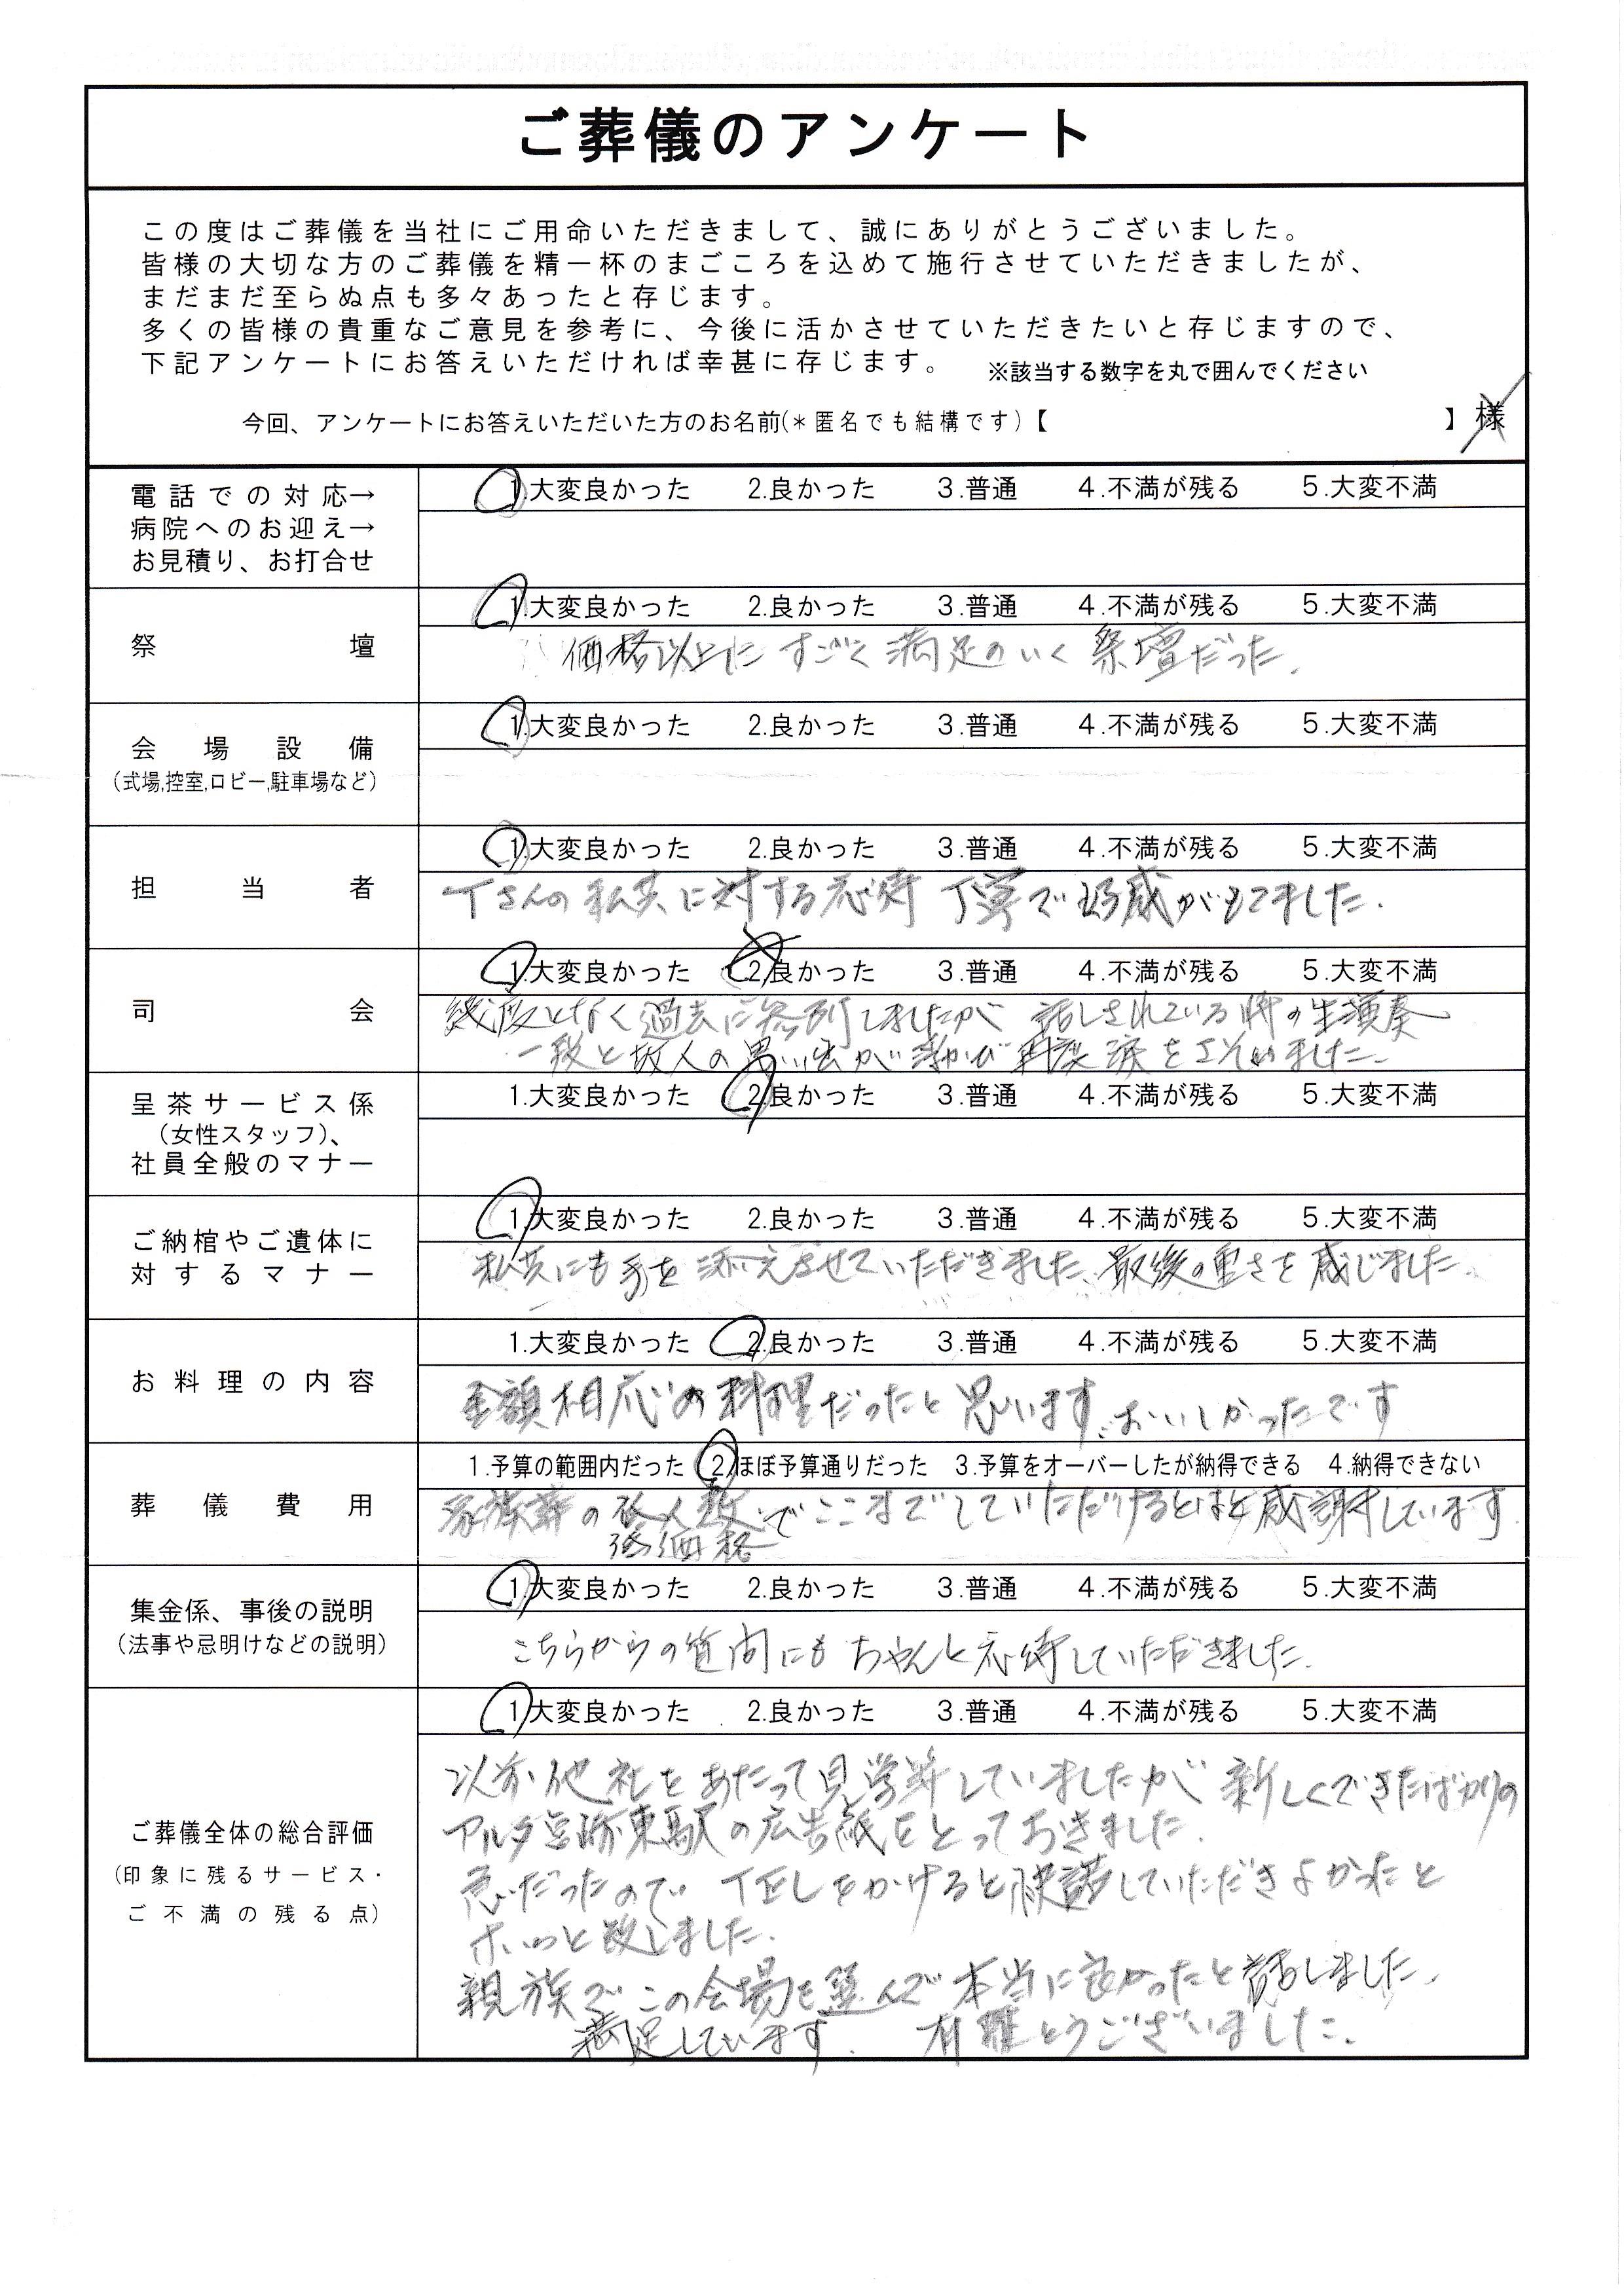 ご葬儀のアンケート
この度はご葬儀を当社にご用命いただきまして、誠にありがとうございました。
皆様の大切な方のご葬儀を精一杯のまごころを込めて施行させていただきましたが、
まだまだ至らぬ点も多々あったと存じます。
多くの皆様の貴重なご意見を参考に、今後に活かさせていただきたいと存じますので、
下記アンケートにお答えいただければ幸甚に存じます。 ※該当する数字を丸で囲んでください
今回、アンケートにお答えいただいた方のお名前(*匿名でも結構です)【 】様
電話での対応→
病院へのお迎え→
お見積り、お打合せ
1.大変良かった 2.良かった 3.普通 4.不満が残る 5.大変不満
祭壇
1.大変良かった 2.良かった 3.普通 4.不満が残る 5.大変不満
価格以上に すごく満足のいく祭壇だった.
会場設備
(式場,控室,ロビー,駐車場など)
1.大変良かった 2.良かった 3.普通 4.不満が残る 5.大変不満
担当者
1.大変良かった 2.良かった 3.普通 4.不満が残る 5.大変不満
Tさんの私共に対する応待 丁寧で好感がもてました.
司会
1.大変良かった 2.良かった 3.普通 4.不満が残る 5.大変不満
幾度となく過去に参列しましたが 話しされている時の生演奏
一段と故人の思い出が浮かび再度涙をさそいました.
呈茶サービス係
(女性スタッフ)、
社員全般のマナー
1.大変良かった 2.良かった 3.普通 4.不満が残る 5.大変不満
ご納棺やご遺体に
対するマナー
1.大変良かった 2.良かった 3.普通 4.不満が残る 5.大変不満
私共にも手を添えさせていただきました、最後の重さを感じました、
お料理の内容
1.大変良かった 2.良かった 3.普通 4.不満が残る 5.大変不満
金額相応の料理だったと思います、おいしかったです
葬儀費用
1.予算の範囲内だった 2.ほぼ予算通りだった 3.予算をオーバーしたが納得できる 4.納得できない
家族葬の 人数でここまでしていただけるとはと感謝しています
低価格
集金係、事後の説明
(法事や忌明けなどの説明)
1.大変良かった 2.良かった 3.普通 4.不満が残る 5.大変不満
こちらからの質問にもちゃんと応待していただきました.
ご葬儀全体の総合評価
(印象に残るサービス・
ご不満の残る点)
1.大変良かった 2.良かった 3.普通 4.不満が残る 5.大変不満
以前他社をあたって見学等していましたが 新しくできたばかりの
アルタ 東駅の広告紙をとっておきました.
急だったので TELをかけると快諾していただきよかったと
ホッと致しました.
親族でこの会場を選んで本当に良かったと話しました、
満足しています. 有難とうございました.